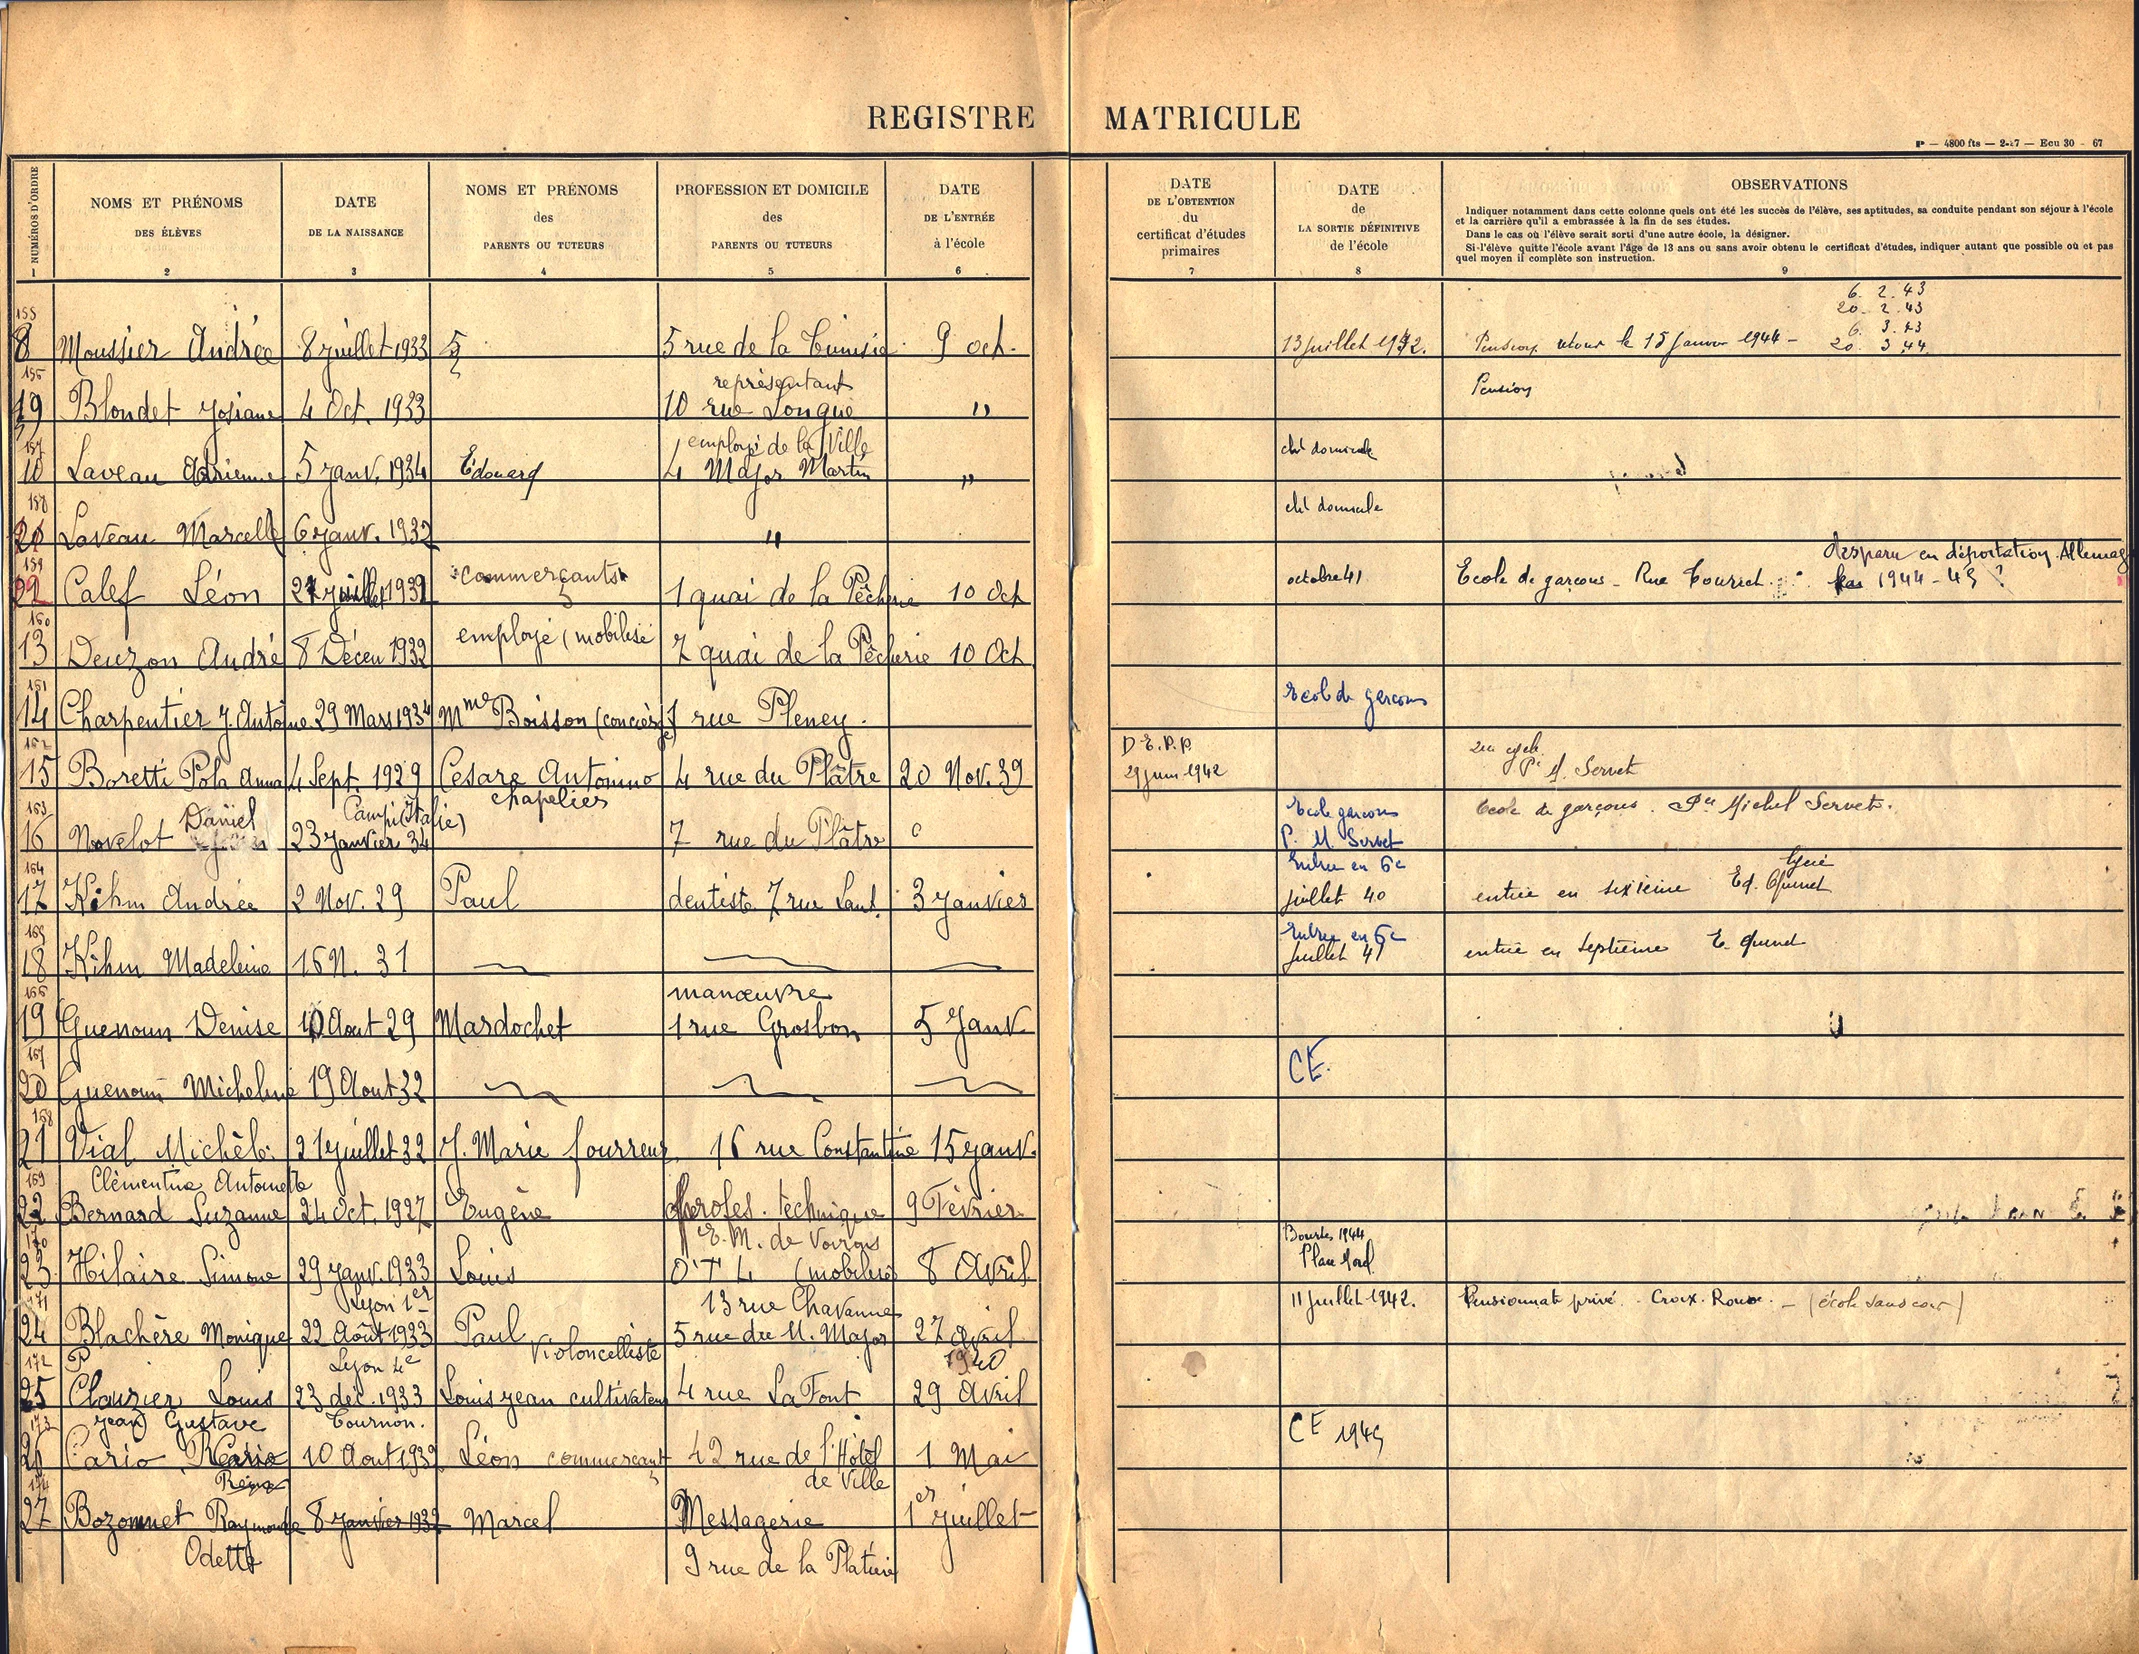 REGISTRE MATRICULE
P — 4800 fts — 2-47 — Ecu 30 - 67
NUMÉROS D'ORDRE
1
NOMS ET PRÉNOMS
DES ÉLÈVES
2
DATE
DE LA NAISSANCE
3
NOMS ET PRÉNOMS
des
PARENTS OU TUTEURS
4
PROFESSION ET DOMICILE
des
PARENTS OU TUTEURS
5
DATE
DE L'ENTRÉE
à l'école
6
DATE
DE L'OBTENTION
du
certificat d'études
primaires
7
DATE
de
LA SORTIE DÉFINITIVE
de l'école
8
OBSERVATIONS
Indiquer notamment dans cette colonne quels ont été les succès de l'élève, ses aptitudes, sa conduite pendant son séjour à l'école
et la carrière qu'il a embrassée à la fin de ses études.
Dans le cas où l'élève serait sorti d'une autre école, la désigner.
Si l'élève quitte l'école avant l'âge de 13 ans ou sans avoir obtenu le certificat d'études, indiquer autant que possible où et par
quel moyen il complète son instruction.
9
6. 2. 43
20. 2. 43
155
6. 3. 43
8 Moussier Andrée 8 juillet 1933 5 rue de la Tunisie 9 oct. 13 juillet 1942. Pension retour le 15 Janvier 1944 - 20 3 44
156
représentant
Pension
9 Blondet Josiane 4 Oct. 1933 10 rue Longue "
157
employé de la Ville
cht domicile
10 Laveau Adrienne 5 janv. 1934 Edouard 4 Major Martin "
158
cht domicile
Laveau Marcelle 6 janv. 1932 "
159
commerçants
disparu en déportation Allemag
Calef Léon juillet 1932 1 quai de la Pêcherie 10 Oct octobre 41 Ecole de garçons - Rue Tourret. 1944-45 ?
160
employé (mobilisé
13 Deuzon André 8 Décem 1932 7 quai de la Pêcherie 10 Oct
161
Ecole de garçons
14 Charpentier J. Antoine 29 Mars 1934 Mme Boisson (concierge) 1 rue Pleney.
162
D.E.P.P.
29 juin 1942
15 Boretti Pola Anna 4 Sept. 1929 Cesare Antonino 4 rue du Plâtre 20 Nov. 39 M. Servet
Campi (Italie)
chapelier
163
Daniel
Ecole garçons
P. M. Servet
Ecole de garçons. Michel Servet.
16 Novelot 23 janvier 34 7 rue du Plâtre
164
Entrée en 6e
Lycée
17 Kihm Andrée 2 Nov. 29 Paul dentiste 7 rue Lant. 3 janvier juillet 40 entrée en sixième Ed. Quinet
165
Entrée en 6e
18 Kihm Madeleine 16 N. 31 juillet 41 entrée en septième E. Quinet
166
manœuvre
19 Guenoun Denise 10 Aout 29 Mardochet 1 rue Grosbon 5 Janv
167
CE.
20 Guenoun Micheline 19 Aout 32
168
21 Vial Michèle 21 juillet 32 J. Marie fourreur 16 rue Constantine 15 janv.
169
Clémentine Antoinette
22 Bernard Suzanne 24 Oct. 1927 Eugène profes. technique 9 Février
E. M. de Voirons
170
Bourses 1944
Place Nord
23 Hilaire Simone 29 janv. 1933 Louis O T L (mobilisé) 8 Avril
Lyon 1er
13 rue Chavanne
171
24 Blachère Monique 22 Août 1933 Paul 5 rue du M. Major 27 avril 11 juillet 1942. Pensionnat privé. Croix. Rousse. - (école sans cour)
P
Lyon 4e
violoncelliste
1940
172
25 Clauzier Louis 23 déc. 1933 Louis jean cultivateur 4 rue LaFont 29 Avril
jean Gustave
Tournon.
173
CE 1945
26 Cario 10 Aout 1932 Léon commerçant 42 rue de l'Hôtel 1 Mai
de Ville
174
27 Bozonnet Raymonde 8 janvier 1932 Marcel Messagerie 1er juillet
Odette
9 rue de la Platière